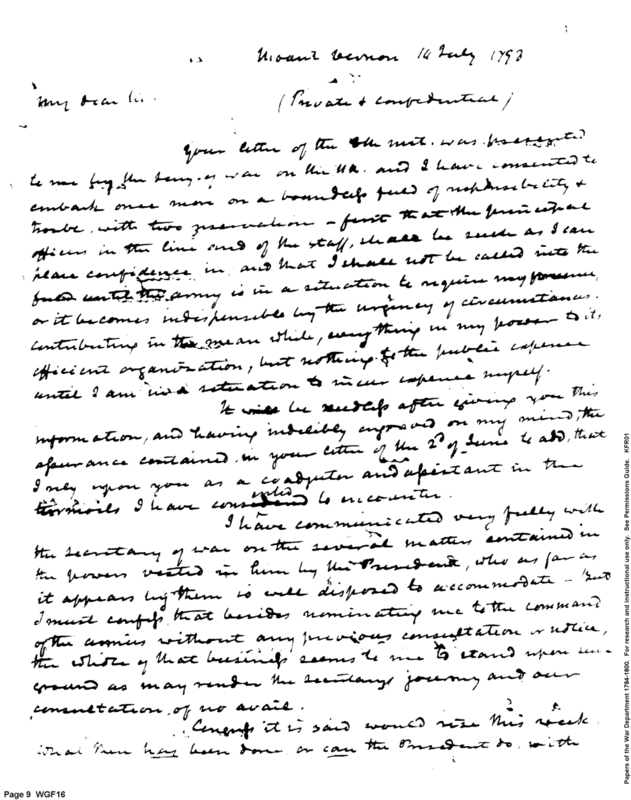 Mount Vernon 14 July 1798
My dear Sir.
(Private & confidential)
Your letter of the 8th inst. was presented
to me by the Secy. of war on the 11th. and I have consented to
embark once more on a boundless field of responsibility &
trouble, with two reservations – first that the principal
officers in the line and of the staff, shall be such as I can
place confidence in, and that I shall not be called into the
field until the army is in a situation to require my presence,
or it becomes indispensible by the urgency of circumstances.
contributing in the mean while, every thing in my power to its
efficient organization, but nothing to the public expence
until I am in a situation to incur expence myself.
It will be needless after giving you this
information, and having indelibly engraved on my mind, the
assurance contained in your letter of the 2d of June to add, that
I rely upon you as a coadjutor and assistant in the
turmoils I have consented to encounter.
I have communicated very fully with
the Secretary of war on the several matters contained in
the powers vested in him by the President, who as far as
it appears by them is well disposed to accommodate – But
I must confess that besides nominating me to the command
of the armies without any previous consultation or notice,
the whole of that business seems to me to stand upon such
ground as may render the Secretarys journey and our
consultation of no avail.
Congress it is said would rise this week
What then has been done, or can the President do, with
Page 9 WGF16
Papers of the War Department 1784-1800. For research and instructional use only. See Permissions Guide. KFR01